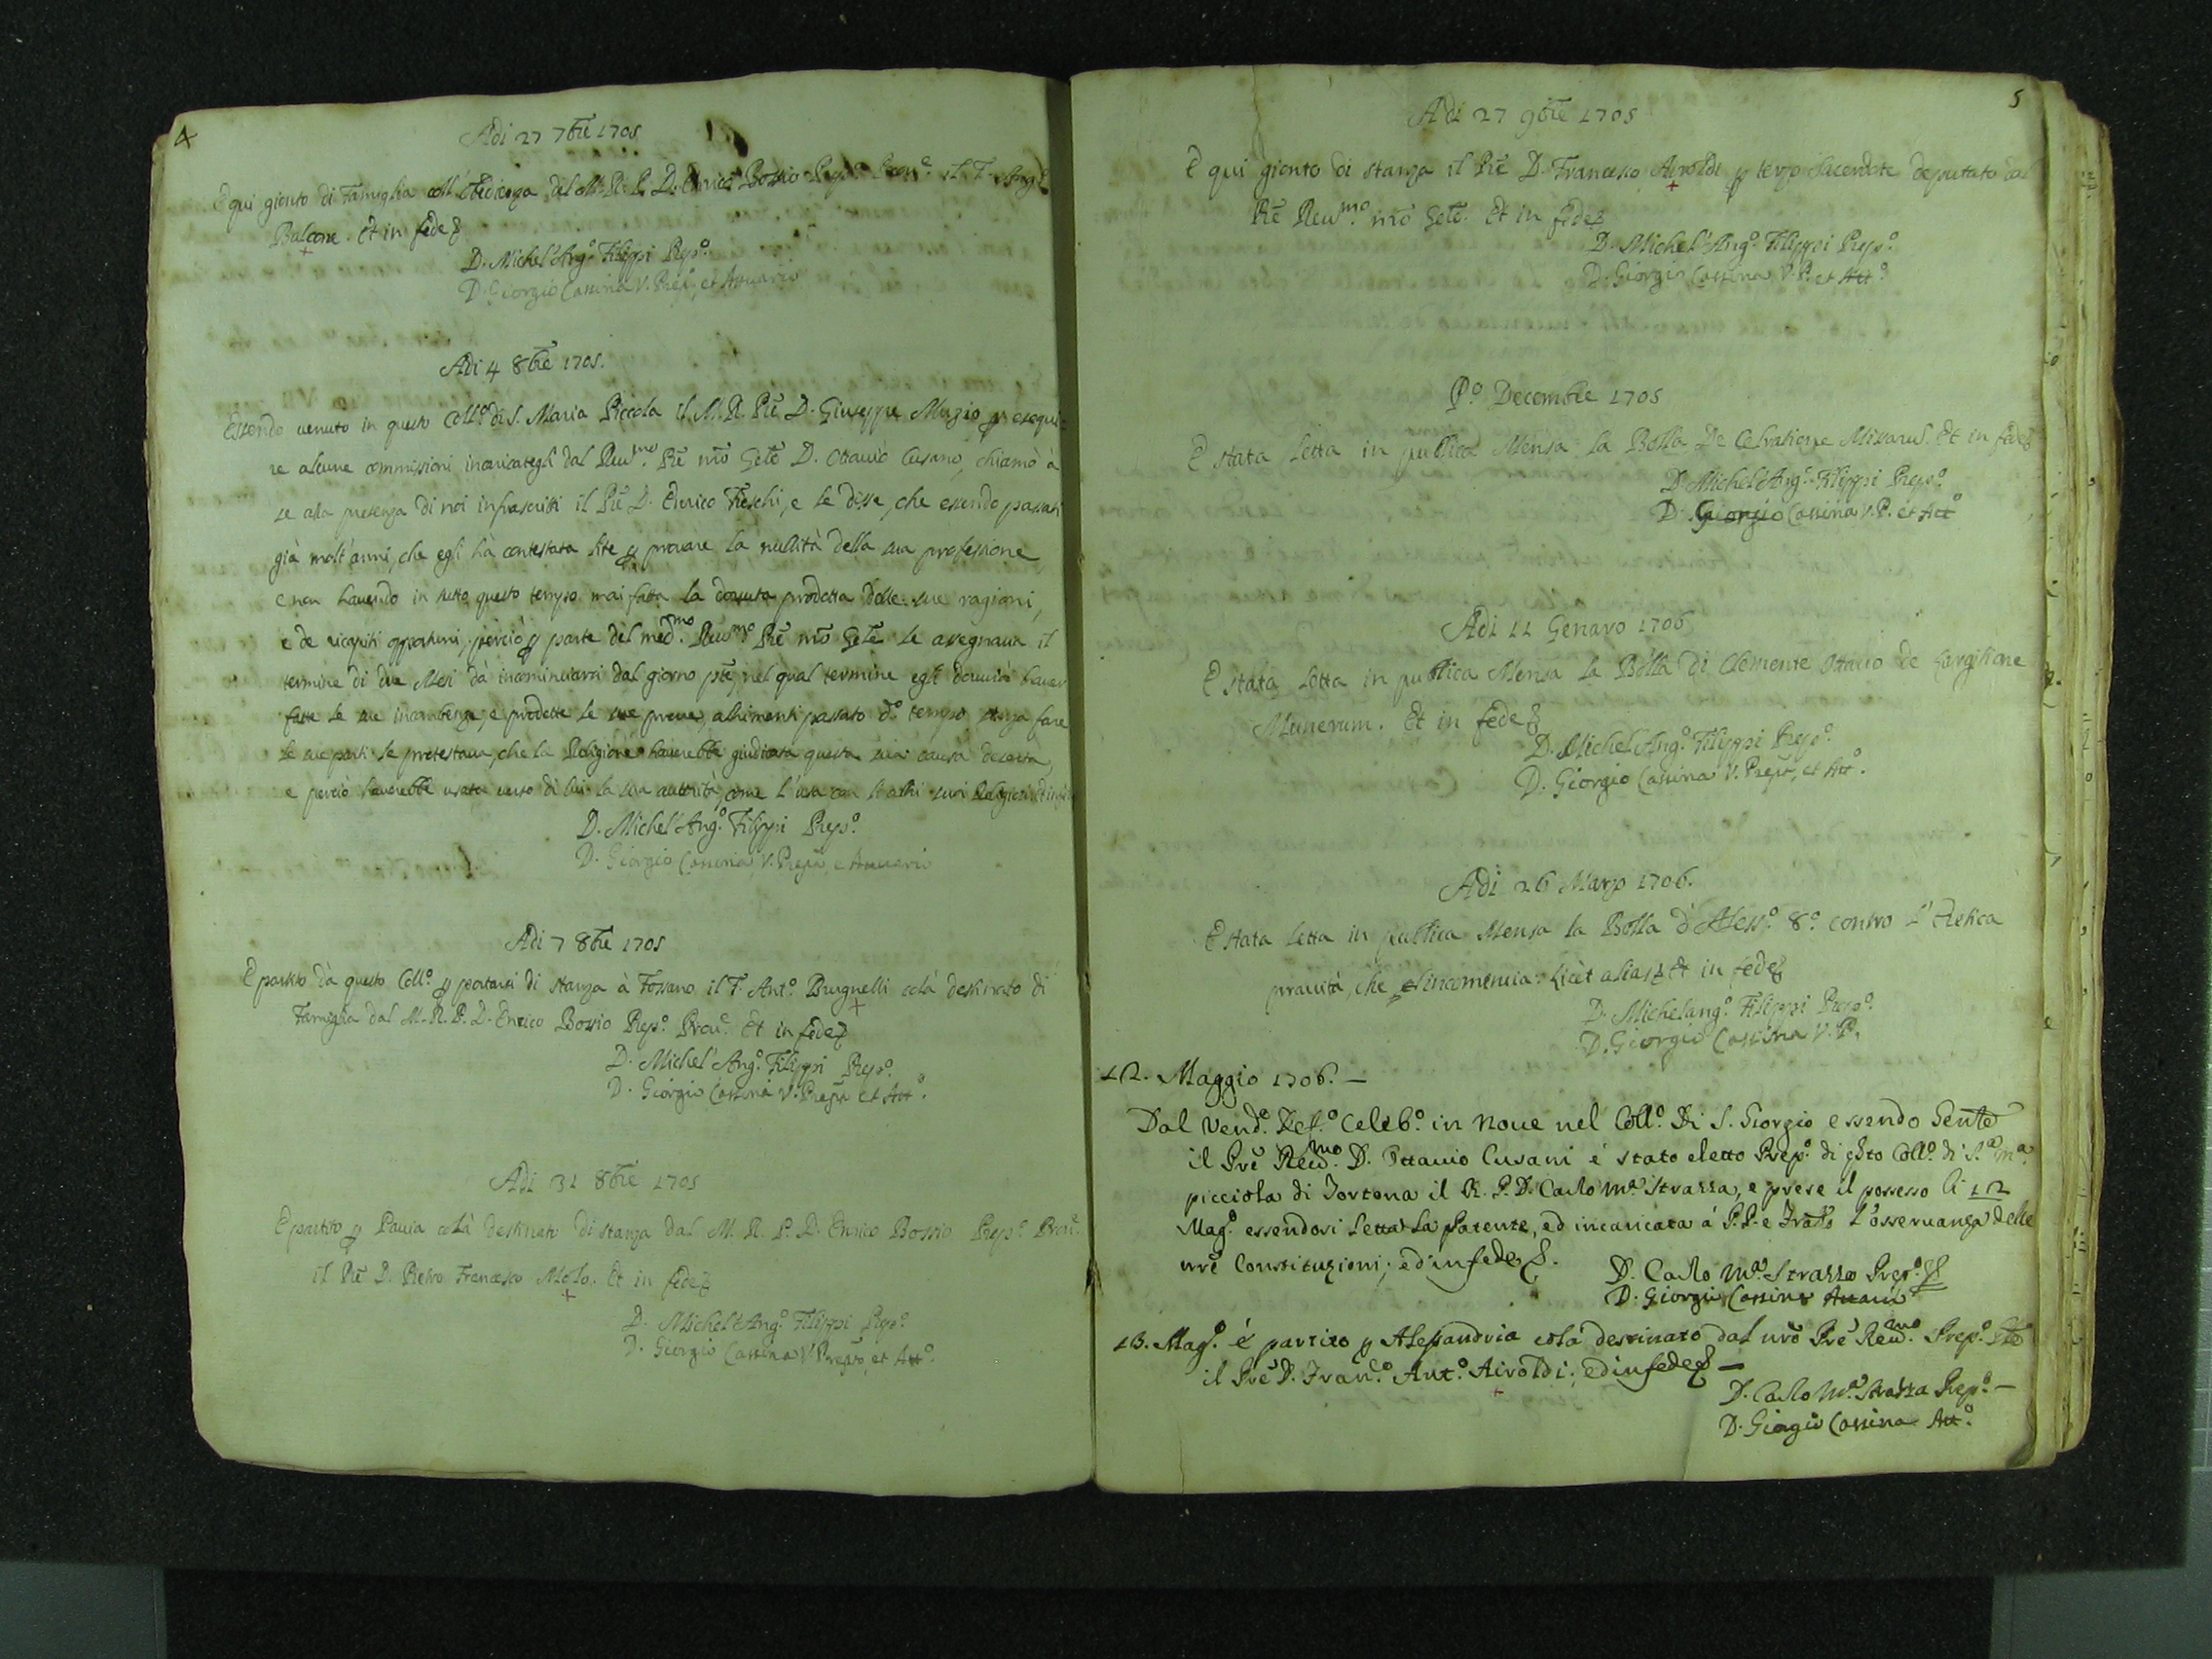 4
Adi 27 7bre 1705
È qui gionto di Famiglia coll'Obedienza del M. R. P. D. Enrico Bossio Prep.o Prov.e il F. Ang.o
Balcone. Et in fede
D. Michel'Ang.o Filippi Prep.o
D. Giorgio Cassina V. Prep.o, et Attuario
Adi 4 8bre 1705.
Essendo venuto in questo Coll.o di S. Maria Piccola il M. R. Pre D. Giuseppe Muzio p esequi=
re alcune commissioni incaricategli dal Reu.mo Pre nro Gēle D. Ottavio Cusano, chiamò à
se alla presenza di noi infrascritti il Pre D. Enrico Fieschi, e le disse, che essendo passati
già molt'anni, che egli hà contestata lite p provare la nullità della sua professione
e non havendo in tutto questo tempo mai fatta la dovuta prodotta delle sue ragioni,
e de ricapiti opportuni, perciò p parte del med.mo Reu.mo Pre nro Gēle le assegnava il
termine di due Mesi dà incominciarsi dal giorno pnte, nel qual termine egli dovrà haver
fatte le sue incombenze, e prodotte le sue prove, altrimenti passato d.o tempo senza fare
le sue parti se protestava, che la Religione haverebbe giudicata questa sua causa deserta,
e perciò haverebbe usata verso di lui la sua autorità, come l'usa con li altri suoi Religiosi. Et in fe
D. Michel'Ang.o Filippi Prep.o
D. Giorgio Cassina, V. Prepto, e Attuario
Adi 7 8bre 1705
È partito dà questo Coll.o p portarsi di stanza à Fossano il F. Ant.o Brugnelli colà destinato di
Famiglia dal M. R. P. D. Enrico Bossio Prep.o Prov.e Et in fede
D. Michel'Ang.o Filippi Prep.o
D. Giorgio Cassina V. Prepto et Att.o
Adi 31 8bre 1705
È partito p Pavia colà destinato di stanza dal M. R. P. D. Enrico Bossio Prep.o Prov.e
il Pre D. Pietro Francesco Molo. Et in fede
D. Michel'Ang.o Filippi Prep.o
D. Giorgio Cassina V. Prepto et Att.o
5
Adi 27 9bre 1705
È qui gionto di stanza il Pre D. Francesco Airoldi p terzo Sacerdote deputato dal
Pre Reu.mo nro Gēle. Et in fede
D. Michel'Ang.o Filippi Prep.o
D. Giorgio Cassina V. P. et Att.o
P.o Decembre 1705
È stata letta in publica Mensa la Bolla De Celebratione Missarum. Et in fede
D. Michel'Ang.o Filippi Prep.o
D. Giorgio Cassina V. P. et Att.o
Adi 11 Genaro 1706
È stata letta in publica Mensa la Bolla di Clemente Ottavo de Largitione
Munerum. Et in fede
D. Michel Ang.o Filippi Prep.o
D. Giorgio Cassina V. Prepto, et Att.o
Adi 26 Marzo 1706.
È stata letta in publica Mensa la Bolla d'Aless.o 8.o contro l'Eretica
pravità, che incomincia: Licèt alias. Et in fede
D. Michelang.o Filippi Prep.o
D. Giorgio Cassina V. P.
12. Maggio 1706. —
Dal Vend.o Def.o Celeb.o in Nove nel Coll.o Di S. Giorgio essendo Gente
il Pre Reu.mo D. Ottavio Cusani è stato eletto Prep.o di qsto Coll.o di S.a M.a
picciola di Tortona il R. P. D. Carlo M.a Strazza, e prese il possesso li 12
Mag.o essendosi Letta La Patente, ed incaricata à P.P. e Fratti L'osservanza delle
nre Constituzioni; ed in fede.
D. Carlo M.a Strazza Prep.o
D. Giorgio Cassina Attuario
13. Mag.o è partito p Alessandria colà destinato dal nro Pre Reu.mo Prep.o Gnle
il Pre D. Fran.o Ant.o Airoldi; ed in fede —
D. Carlo M.a Strazza Prep.o —
D. Giorgio Cassina Att.o